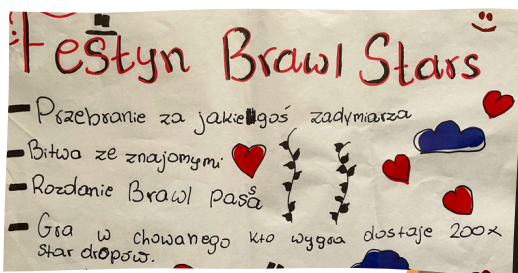 Festyn Brawl Stars
- Przebranie za jakiegoś zadymiarza
- Bitwa ze znajomymi
- Rozdanie Brawl passa
- Gra w chowanego kto wygra dostaje 200x
star dropów.